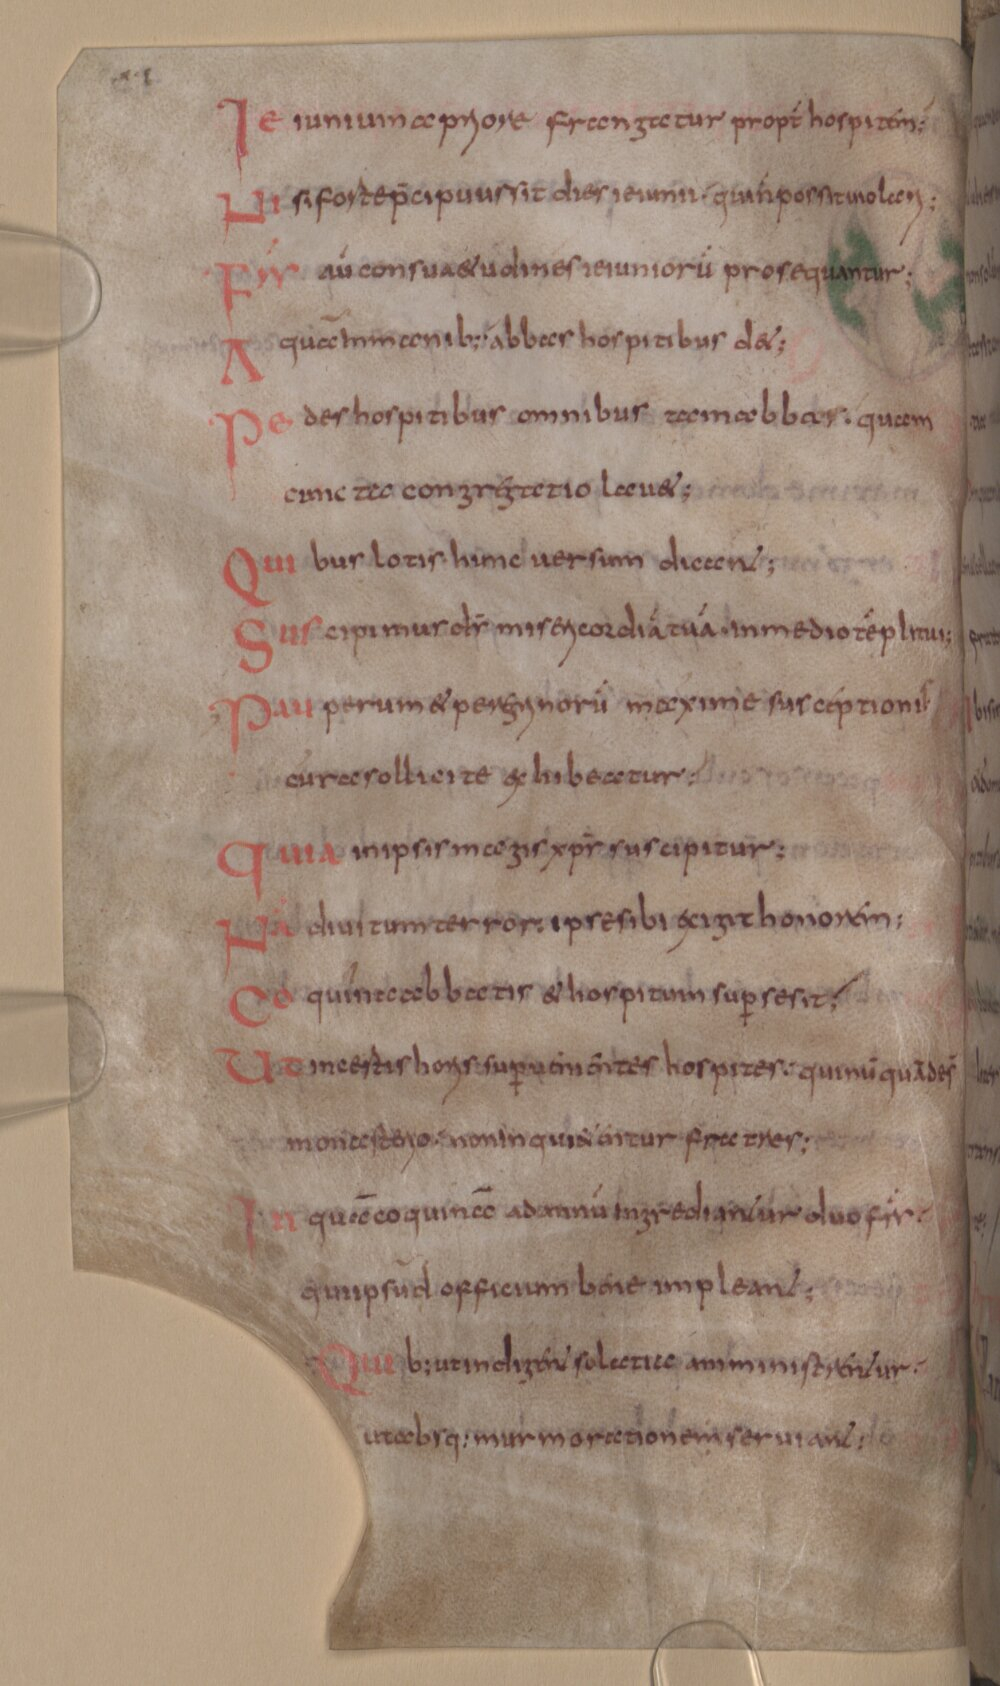 Ieiunium a priore frangatur propt̄ hospitem;
Nisi forte p̄cipuus sit dies ieiunii· qui n̄ possit uiolari;
Fr̄s aū consuaetudines ieiuniorū prosequantur;
Aquā in manib; abbas hospitibus det;
Pedes hospitibus omnibus tam abbas· quam
cuncta congregatio lauet;
Quibus lotis· hunc uersum dicant;
Suscipimus dš misericordiā tuā· in medio tēpli tui;
Pauperum & peregrinorū maxime susceptionis
cura sollicite exhibeatur;
Quia in ipsis magis xpr̄ suscipitur;
Nā diuitum terror· ipse sibi exigit honorem;
Coquina abbatis & hospitum sup̱ se sit;
Ut incertis horis sup̱uenientes hospites· qui nū quā des̄
monasterio· non inquietentur fratres;
In quā coquinā ad annū ingrediantur duo fr̄s·
qui ipsud officium bene impleant;
Quib; ut indigent solatia amministrentur·
ut absq; murmorationem seruiant;